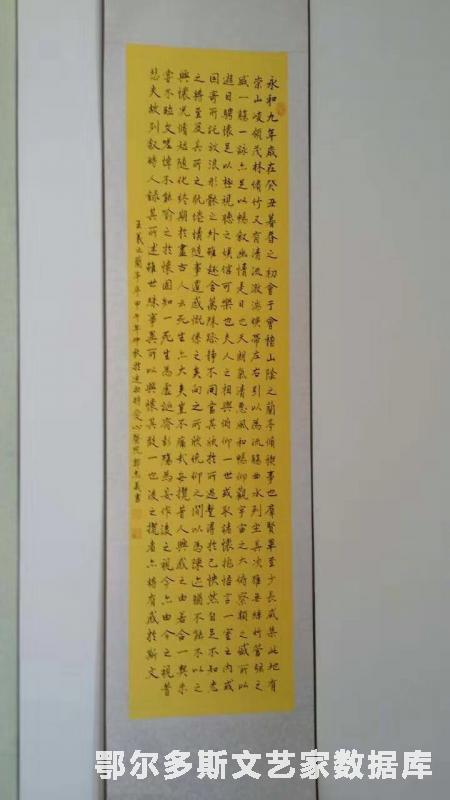 永和九年歲在癸丑暮春之初會于會稽山陰之蘭亭脩禊事也群賢畢至少長咸集此地有
崇山峻領茂林脩竹又有清流激湍暎帶左右引以為流觴曲水列坐其次雖無絲竹管弦之
盛一觴一詠亦足以暢敘幽情是日也天朗氣清惠風和暢仰觀宇宙之大俯察類之盛所以
遊目騁懷足以極視聽之娛信可樂也夫人之相與俯仰一世或取諸懷抱悟言一室之內或
因寄所託放浪形骸之外雖趣舍萬殊静躁不同當其欣於所遇暫得於己快然自足不知老
之將至及其所之既倦情隨事遷感慨係之矣向之所欣俛仰之間以為陳迹猶不能不以之
興懷況脩短隨化終期於盡古人云死生亦大矣豈不痛哉每攬昔人興感之由若合一契未
嘗不臨文嗟悼不能喻之於懷固知一死生為虛誕齊彭殤為妄作後之視今亦由今之視昔
悲夫故列敘時人錄其所述雖世殊事異所以興懷其致一也後之攬者亦將有感於斯文
王羲之蘭亭序甲午年仲秋於達拉特愛心醫院書
鄂尔多斯文艺家数据库